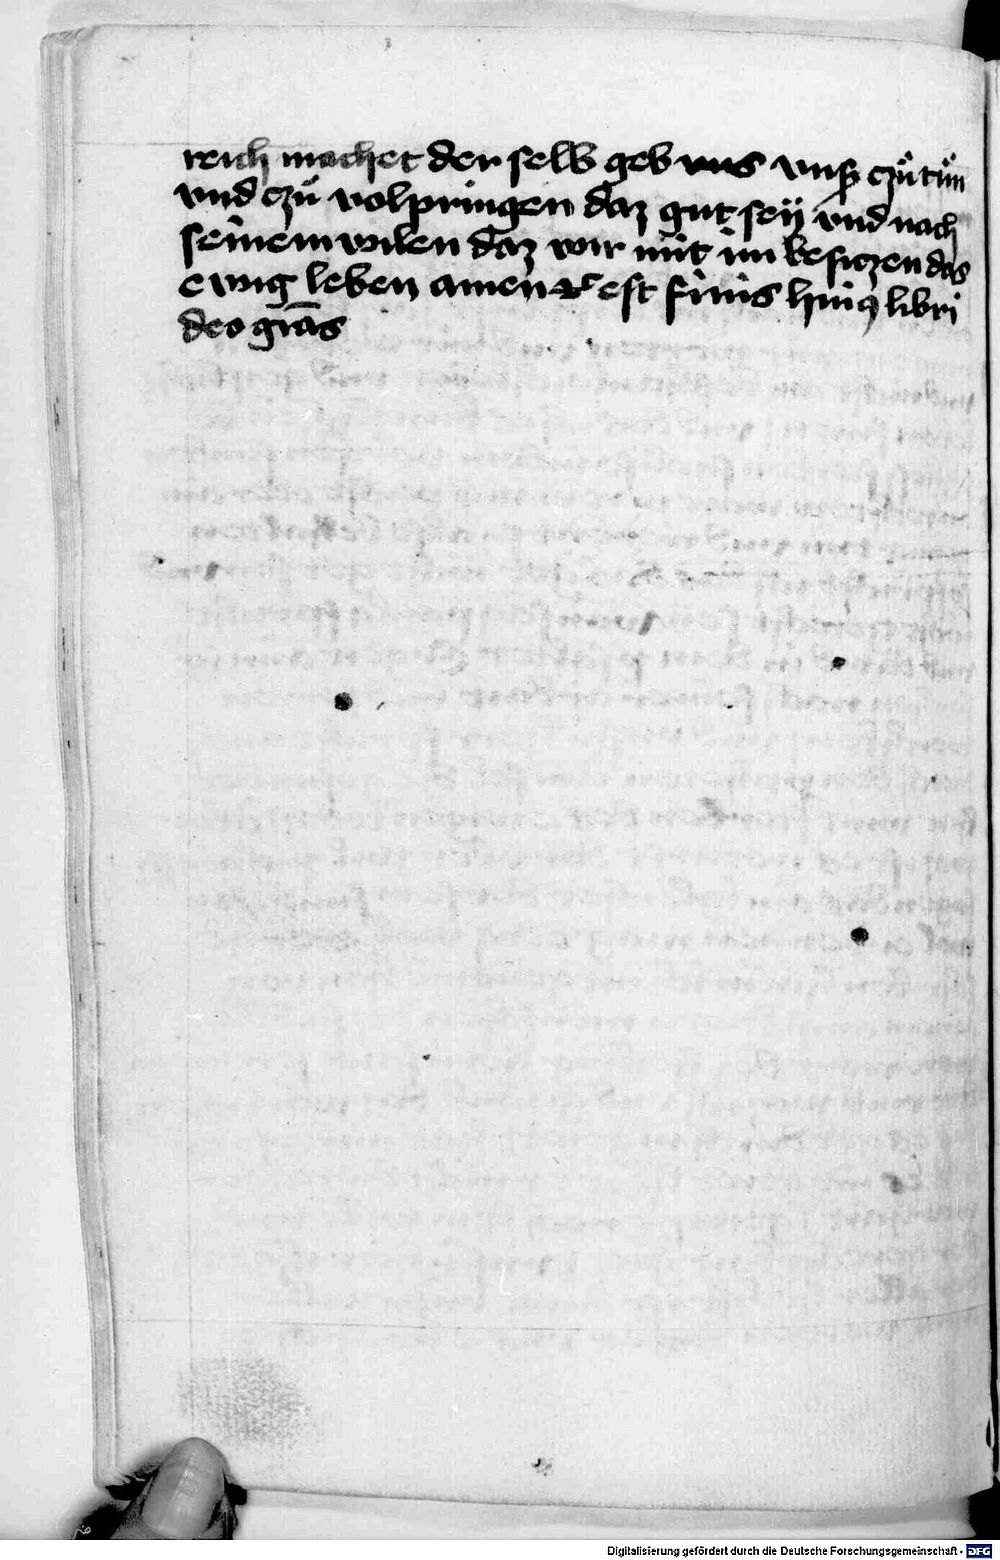 reich machet der selb geb uns czů tůn
vnd czů volpringen daz gut seÿ vnd nach
seinem willen daz wir mit im besiczen das
ewig leben amen ⁊c̄ est finis huiꝰ libri
deo grãs
Digitalisierung gefördert durch die Deutsche Forschungsgemeinschaft - DFG